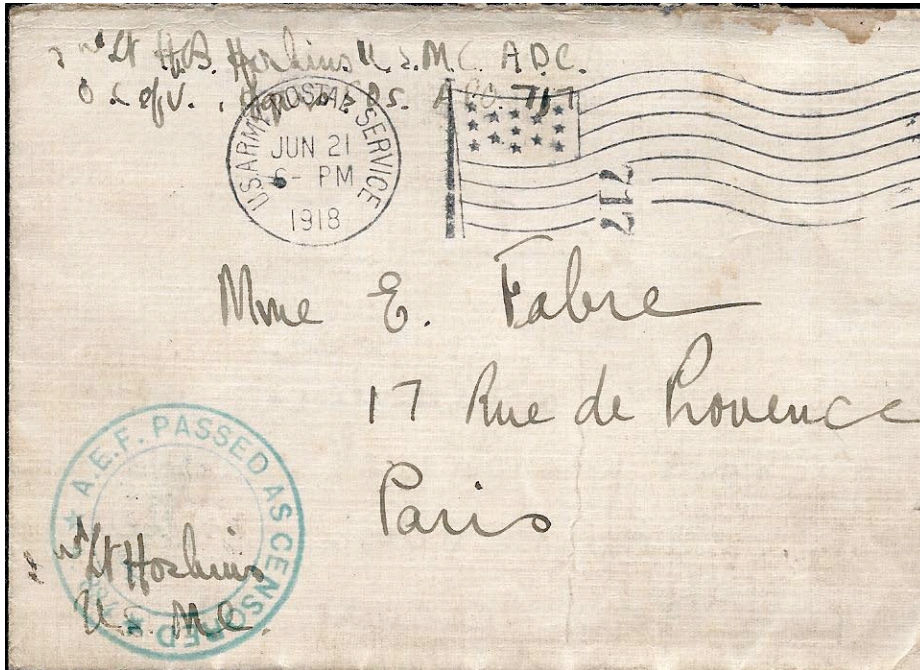 2nd Lt H.B. Hoskins U.S.M.C. A.D.C.
P.S. A.P.O. 717
U.S. ARMY POSTAL SERVICE
JUN 21
6 - PM
1918
717
Mme E. Fabre
17 Rue de Provence
Paris
A.E.F. PASSED AS CENSORED
2nd Lt Hoskins
U.S. M.C.